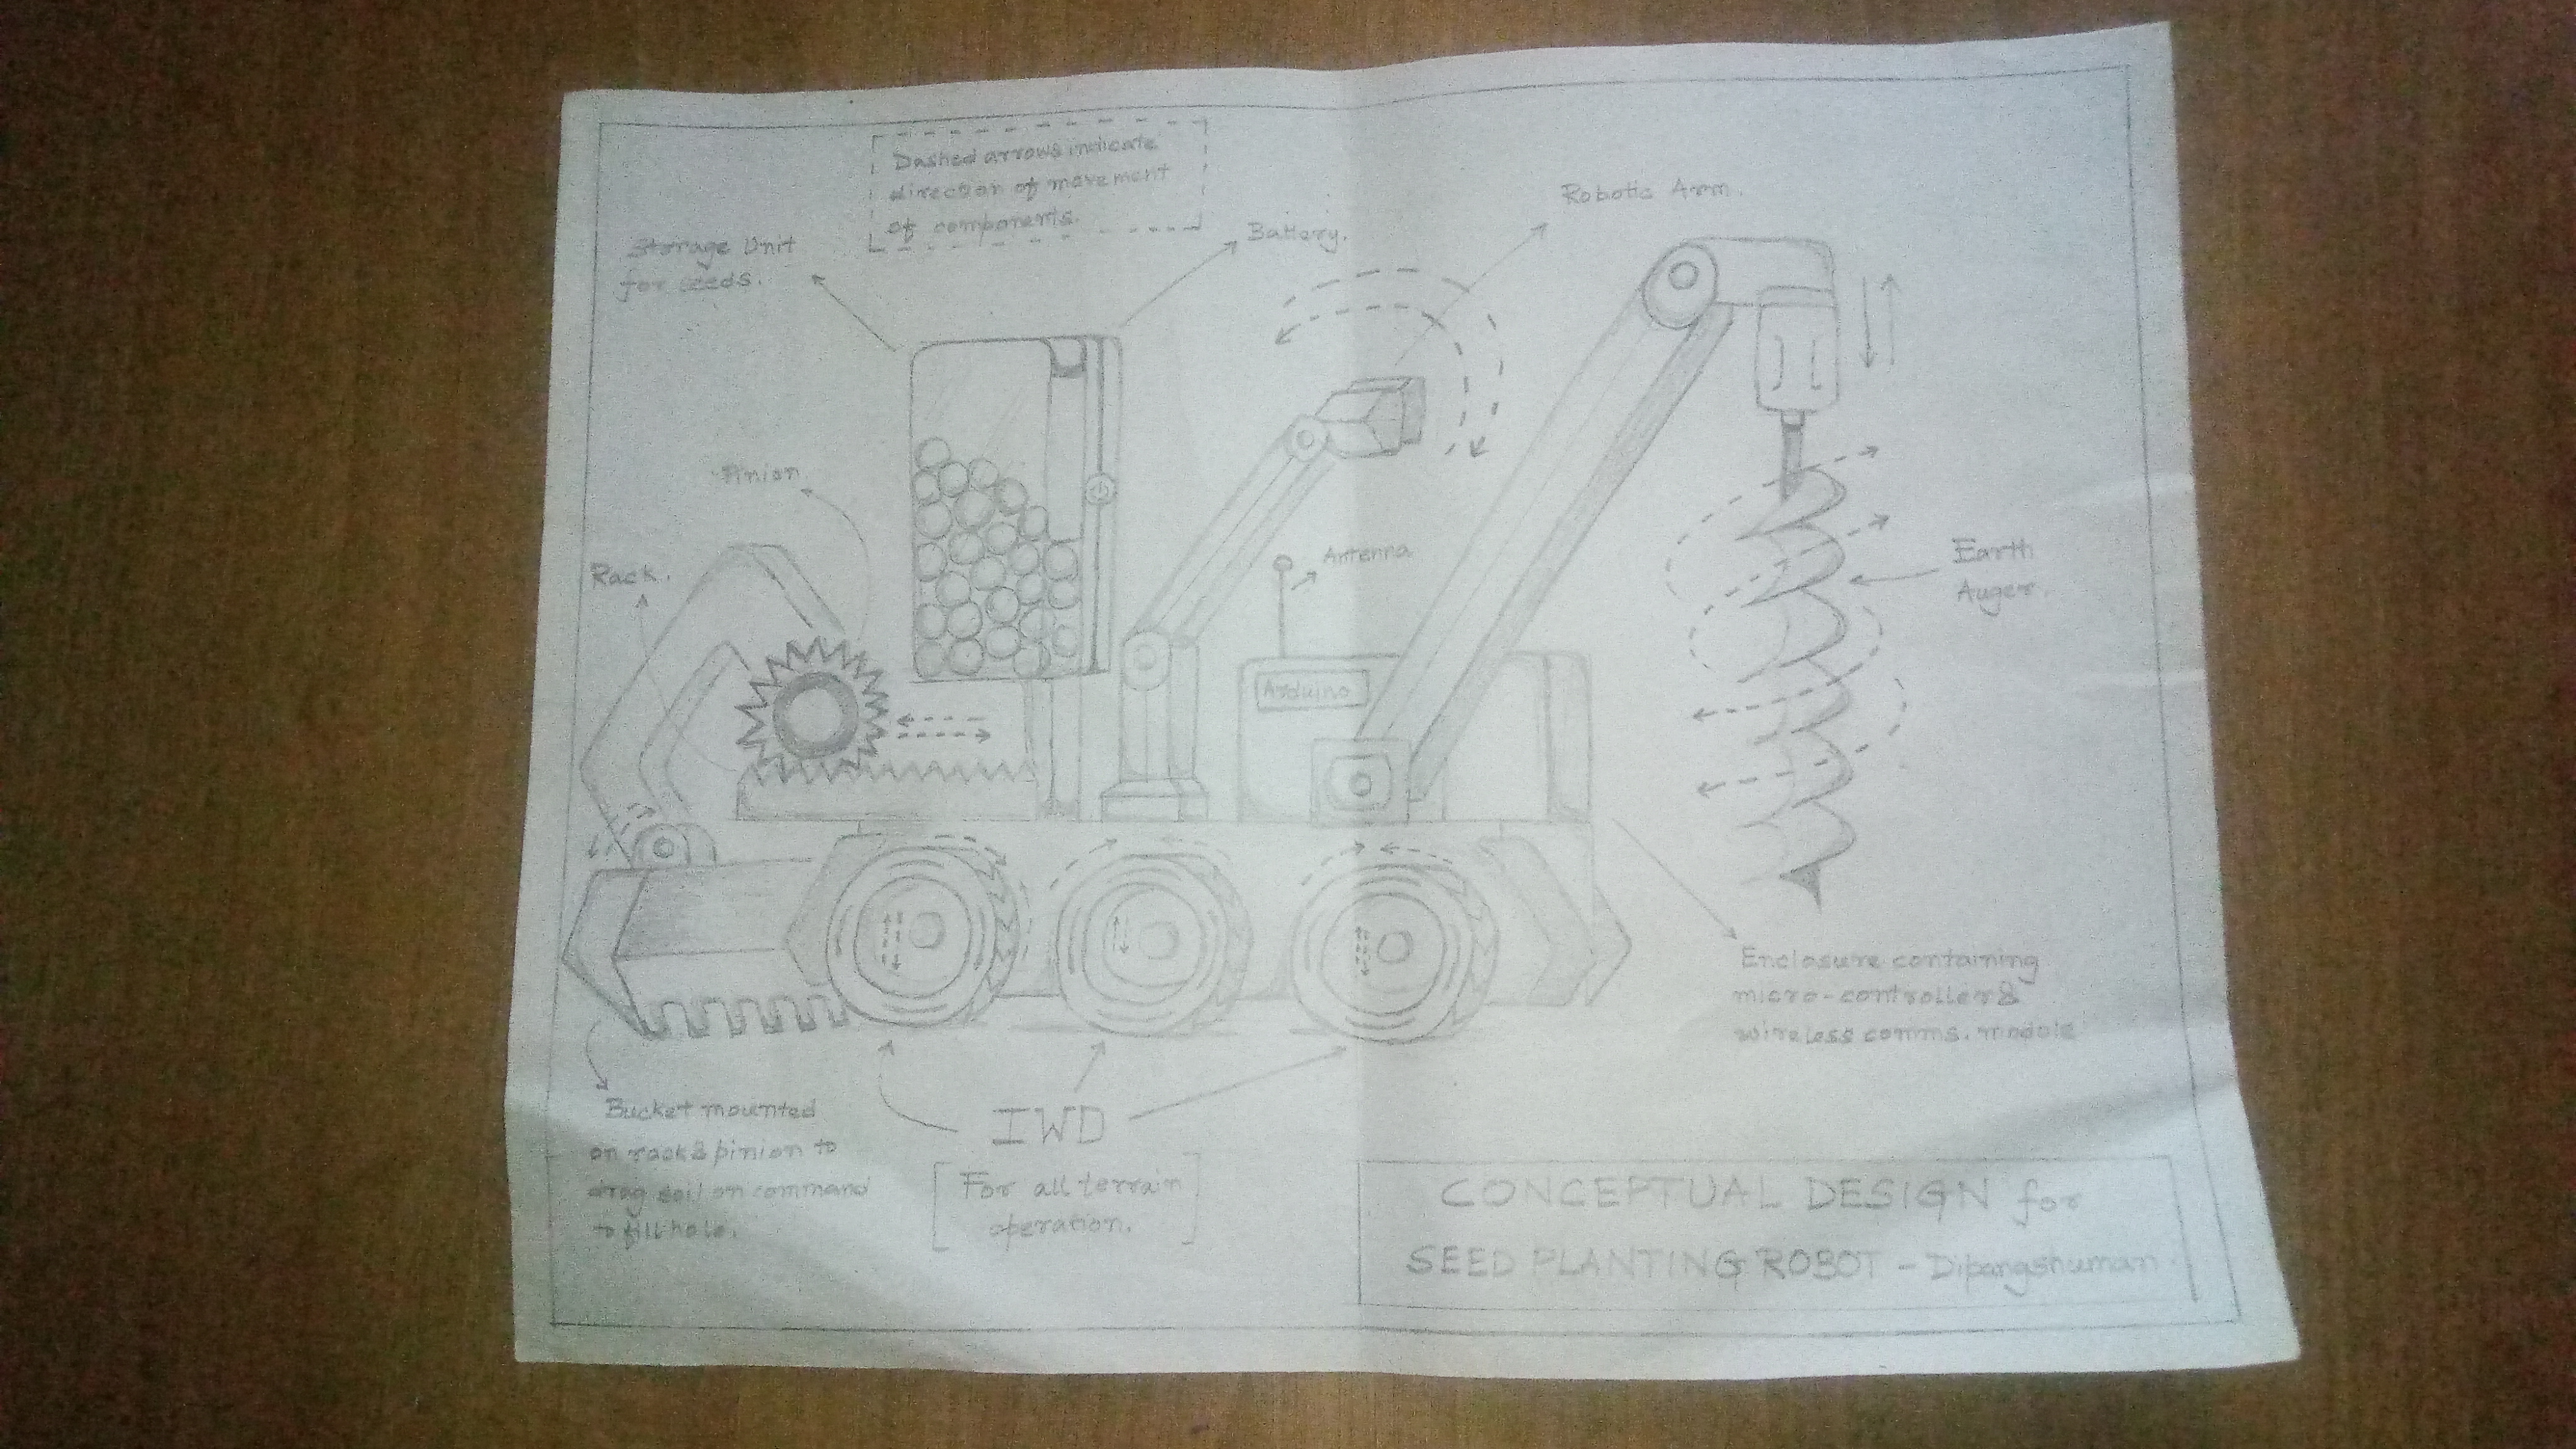 Dashed arrows indicate
direction of movement
of components.
Robotic Arm.
Storage Unit
for seeds.
Battery.
Pinion
Rack.
Antenna
Earth
Auger.
Arduino
Enclosure containing
micro-controller &
wireless comms. module
Bucket mounted
on rack & pinion to
drag soil on command
to fill hole.
IWD
For all terrain
operation.
CONCEPTUAL DESIGN for
SEED PLANTING ROBOT - Dipangshuman